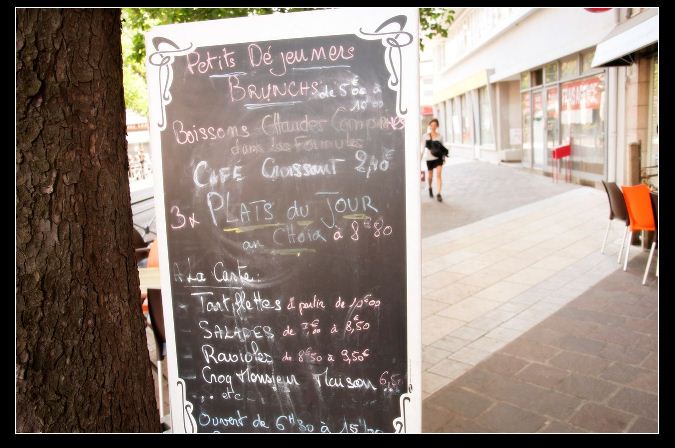 Petits Déjeuners
BRUNCHS de 5€00 à
10€00
Boissons Chaudes Comprises
dans les Formules
CAFE Croissant 2,40€
3x PLATS du JOUR
au Choix à 8€80
A La Carte:
- Tartiflettes à partir de 10€00
- SALADES de 7,€00 à 8,€50
- Ravioles de 8€50 à 9,50€
- Croq Monsieur Maison 6,50
- ,, etc
Ouvert de 6H30 à